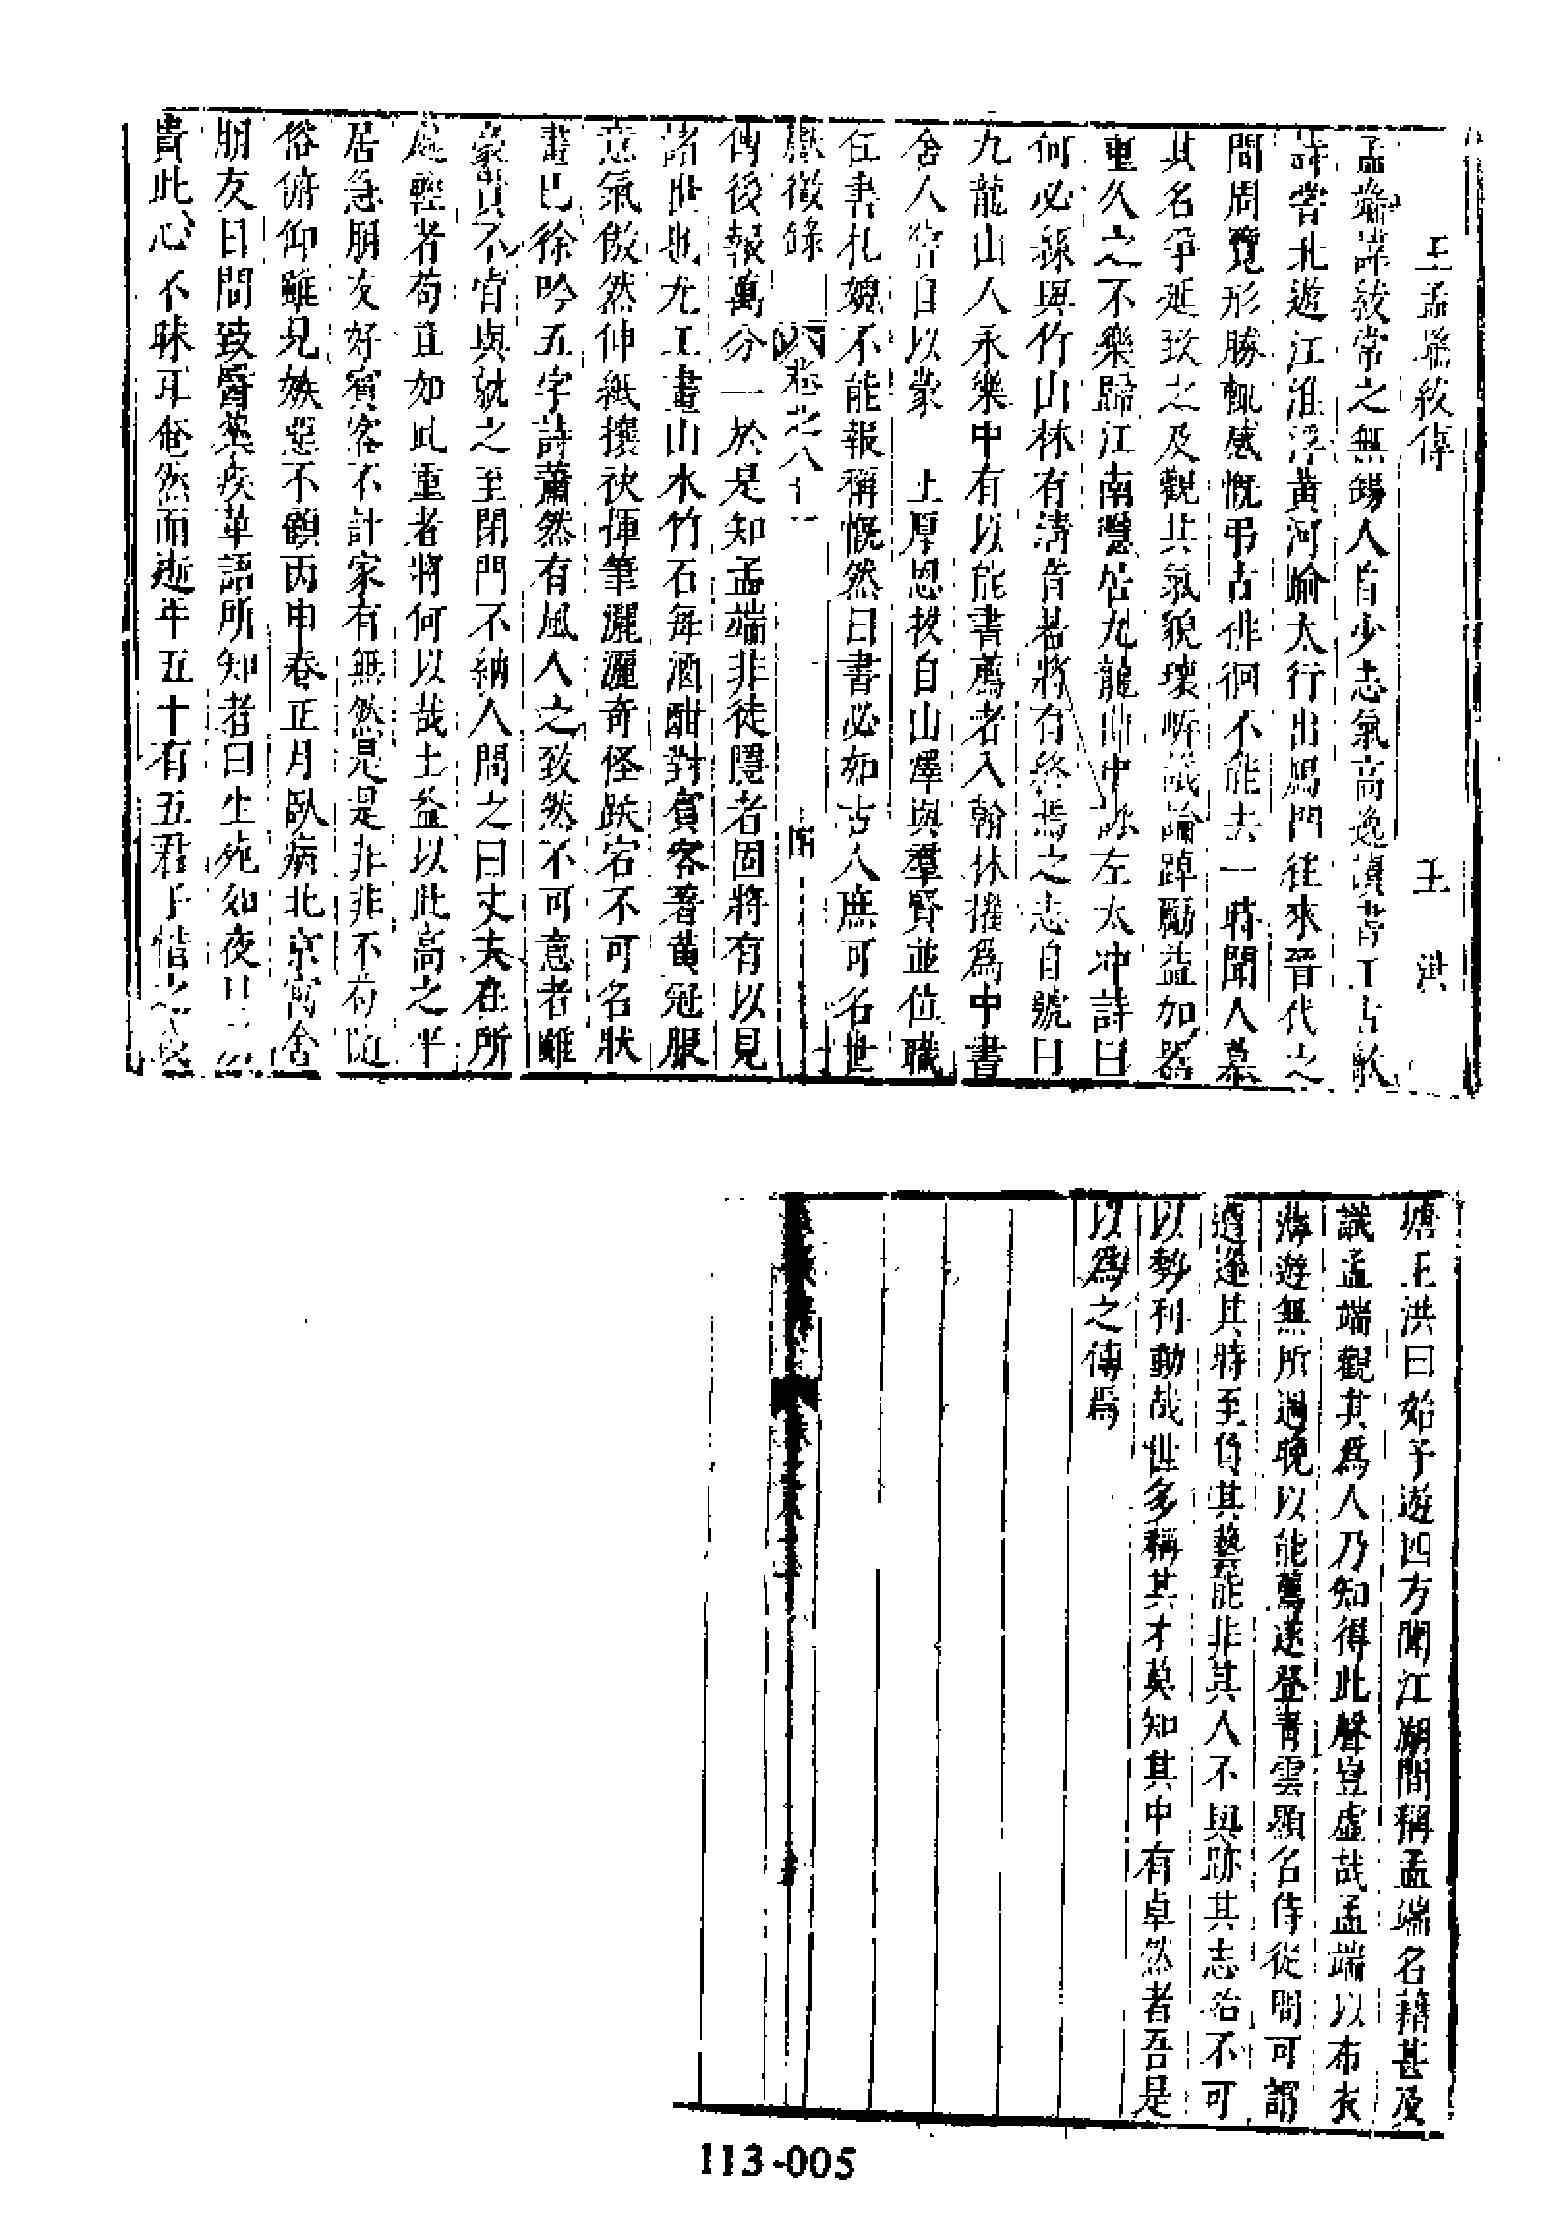 王孟端紱傳 王洪
孟端諱紱常之無錫人自少志氣高逸讀書工古歌
詩嘗北遊江淮浮黃河踰太行出鴈門往來晉代之
間周覽形勝輒感慨弔古徘徊不能去一時聞人慕
其名爭延致之及觀其氣貌瓌岸議論踔勵益加器
重久之不樂歸江南隱居九龍山中咏左太冲詩曰
何必絲與竹山林有清音若將有終焉之志自號曰
九龍山人永樂中有以能書薦者入翰林擢爲中書
舍人嘗自以蒙 上厚恩拔自山澤與羣賢並位職
在書札媿不能報稱慨然曰書必如古人庶可名世
獻徵錄 卷之八十一
傳後報萬分一於是知孟端非徒隱者固將有以見
諸世也尤工畫山水竹石每酒酣對賓客著黃冠服
意氣傲然伸紙攘袂揮筆灑灑奇怪跌宕不可名狀
畫已徐吟五字詩蕭然有風人之致然不可意者雖
豪貴不肯與就之至閉門不納人問之曰丈夫在所
處輕者苟且如此重者將何以哉士益以此高之平
居急朋友好賓客不計家有無然是是非非不苟隨
俗俯仰雖見嫉惡不顧丙申春正月臥病北京寓舍
朋友日問致醫藥疾革語所知者曰生死如夜旦
貴此心不昧耳奄然而逝年五十有五君子惜之
王洪曰始予遊四方聞江湖間稱孟端名藉甚及
識孟端觀其爲人乃知得此聲豈虛哉孟端以布衣
遊無所遇晚以能薦遂登青雲顯名侍從間可謂
遭逢其時至負其藝能非其人不與跡其志殆不可
以勢利動哉世多稱其才莫知其中有卓然者吾是
以爲之傳焉
113-005